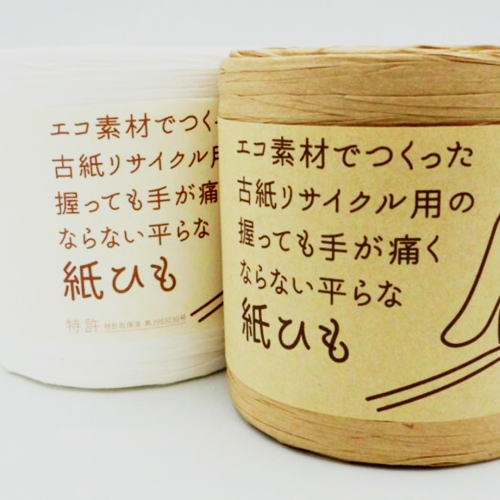 エコ素材でつくっ
古紙リサイクル用
握っても手が痛
ならない平らな
紙ひも
特許
エコ素材でつくった
古紙リサイクル用の
握っても手が痛く
ならない平らな
紙ひも